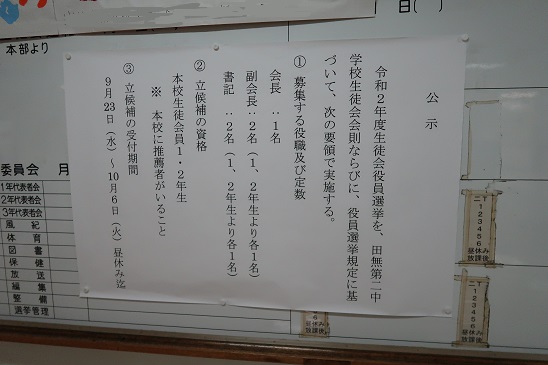 公示
令和２年度生徒会役員選挙を、田無第二中
学校生徒会会則ならびに、役員選挙規定に基
づいて、次の要領で実施する。
① 募集する役職及び定数
会長 ：１名
副会長：２名（１、２年生より各１名）
書記 ：２名（１、２年生より各１名）
② 立候補の資格
本校生徒会員１・２年生
※ 本校に推薦者がいること
③ 立候補の受付期間
９月23日（水）～10月６日（火）昼休み迄
本部より
日( )
委員会 月
1年代表者会
2年代表者会
3年代表者会
風紀
体育
図書
保健
放送
編集
整備
選挙管理
1
2
3
4
5
6
昼休み
放課後
1
2
3
4
5
6
昼休み
放課後
6
昼休み
放課後